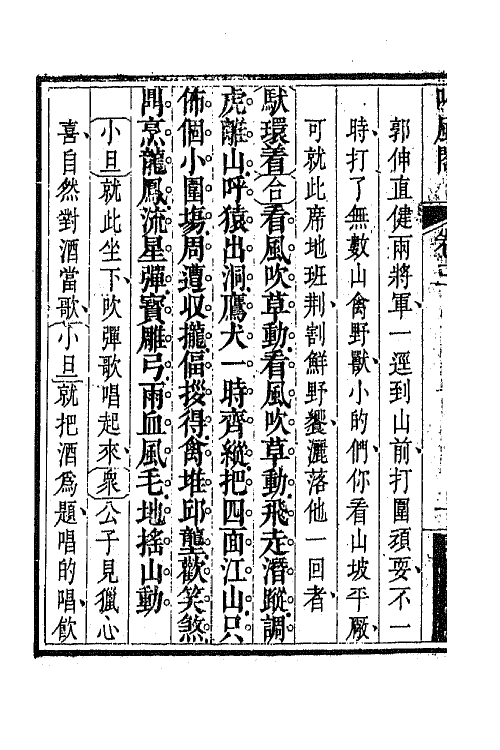 郭仲直健兩將軍一逕到山前打圍頑耍不一
時打了無數山禽野獸小的們你看山坡平厰
可就此席地班荆割鮮野饗灑落他一回者
馱環着合看風吹草動看風吹草動飛走潛蹤調
虎離山呼猿出洞鷹犬一時齊縱把四面江山只
佈個小圍塲周遭収攏偪拶得禽堆邱壟歡笑煞
閗烹龍鳳流星彈寳雕弓雨血風毛地搖山動
小旦就此坐下吹彈歌唱起來衆公子見獵心
喜自然對酒當歌小旦就把酒爲題唱的唱飲